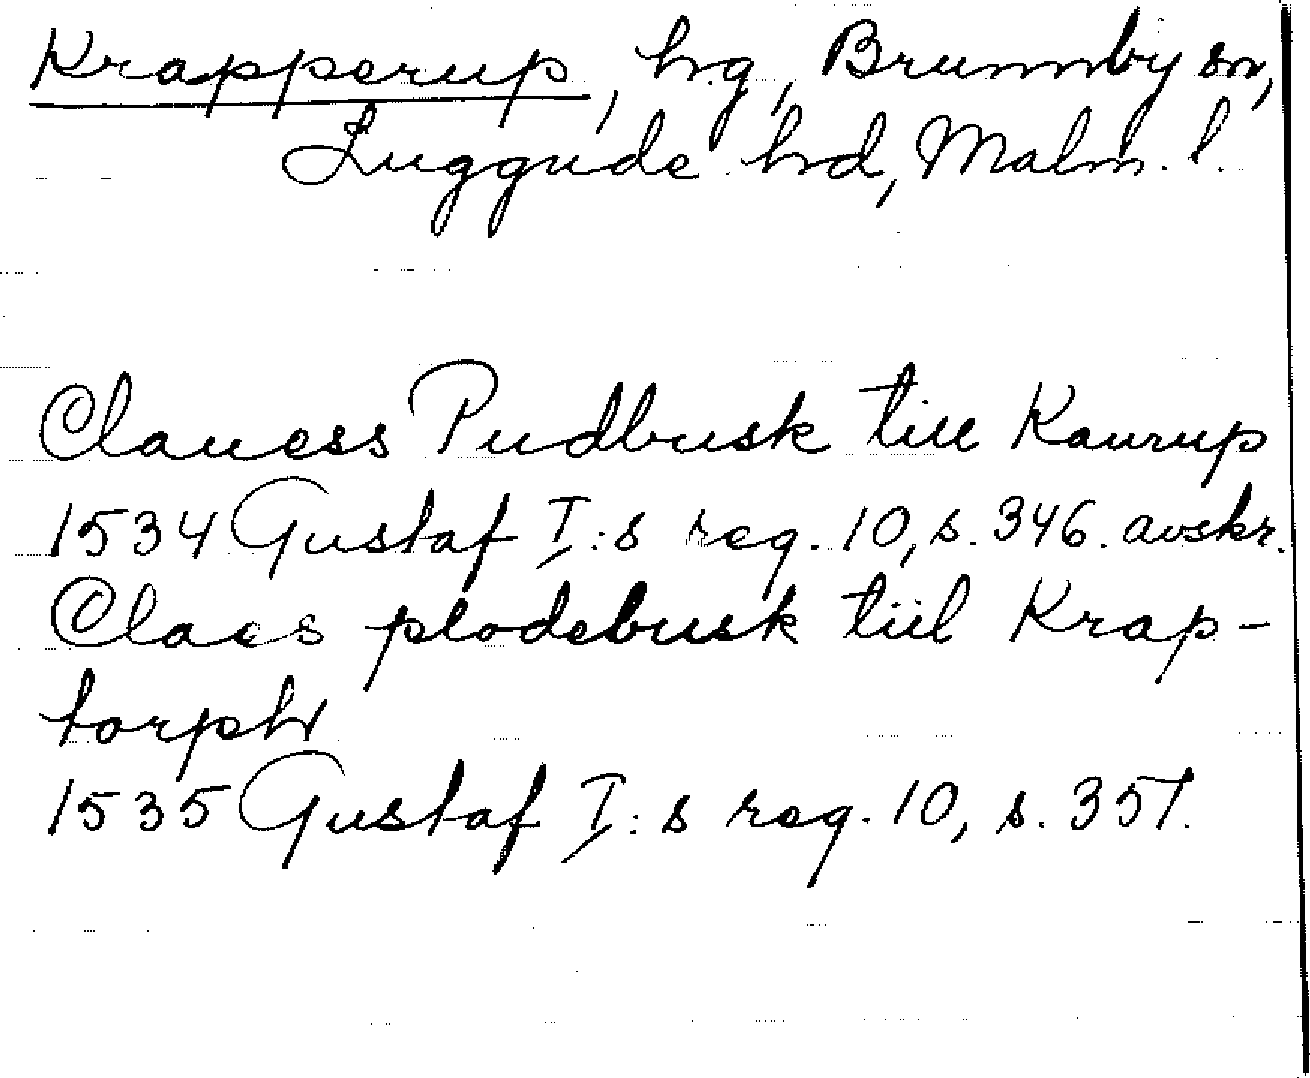 Krapperup, hg, Brunnby sn,
Luggude hd, Malm. l.
Clauess Pudbusk till Kaurup
1534 Gustaf I:s reg. 10, s. 346. avskr.
Claes plodebusk tiil Krap-
torph
1535 Gustaf I:s reg. 10, s. 357.